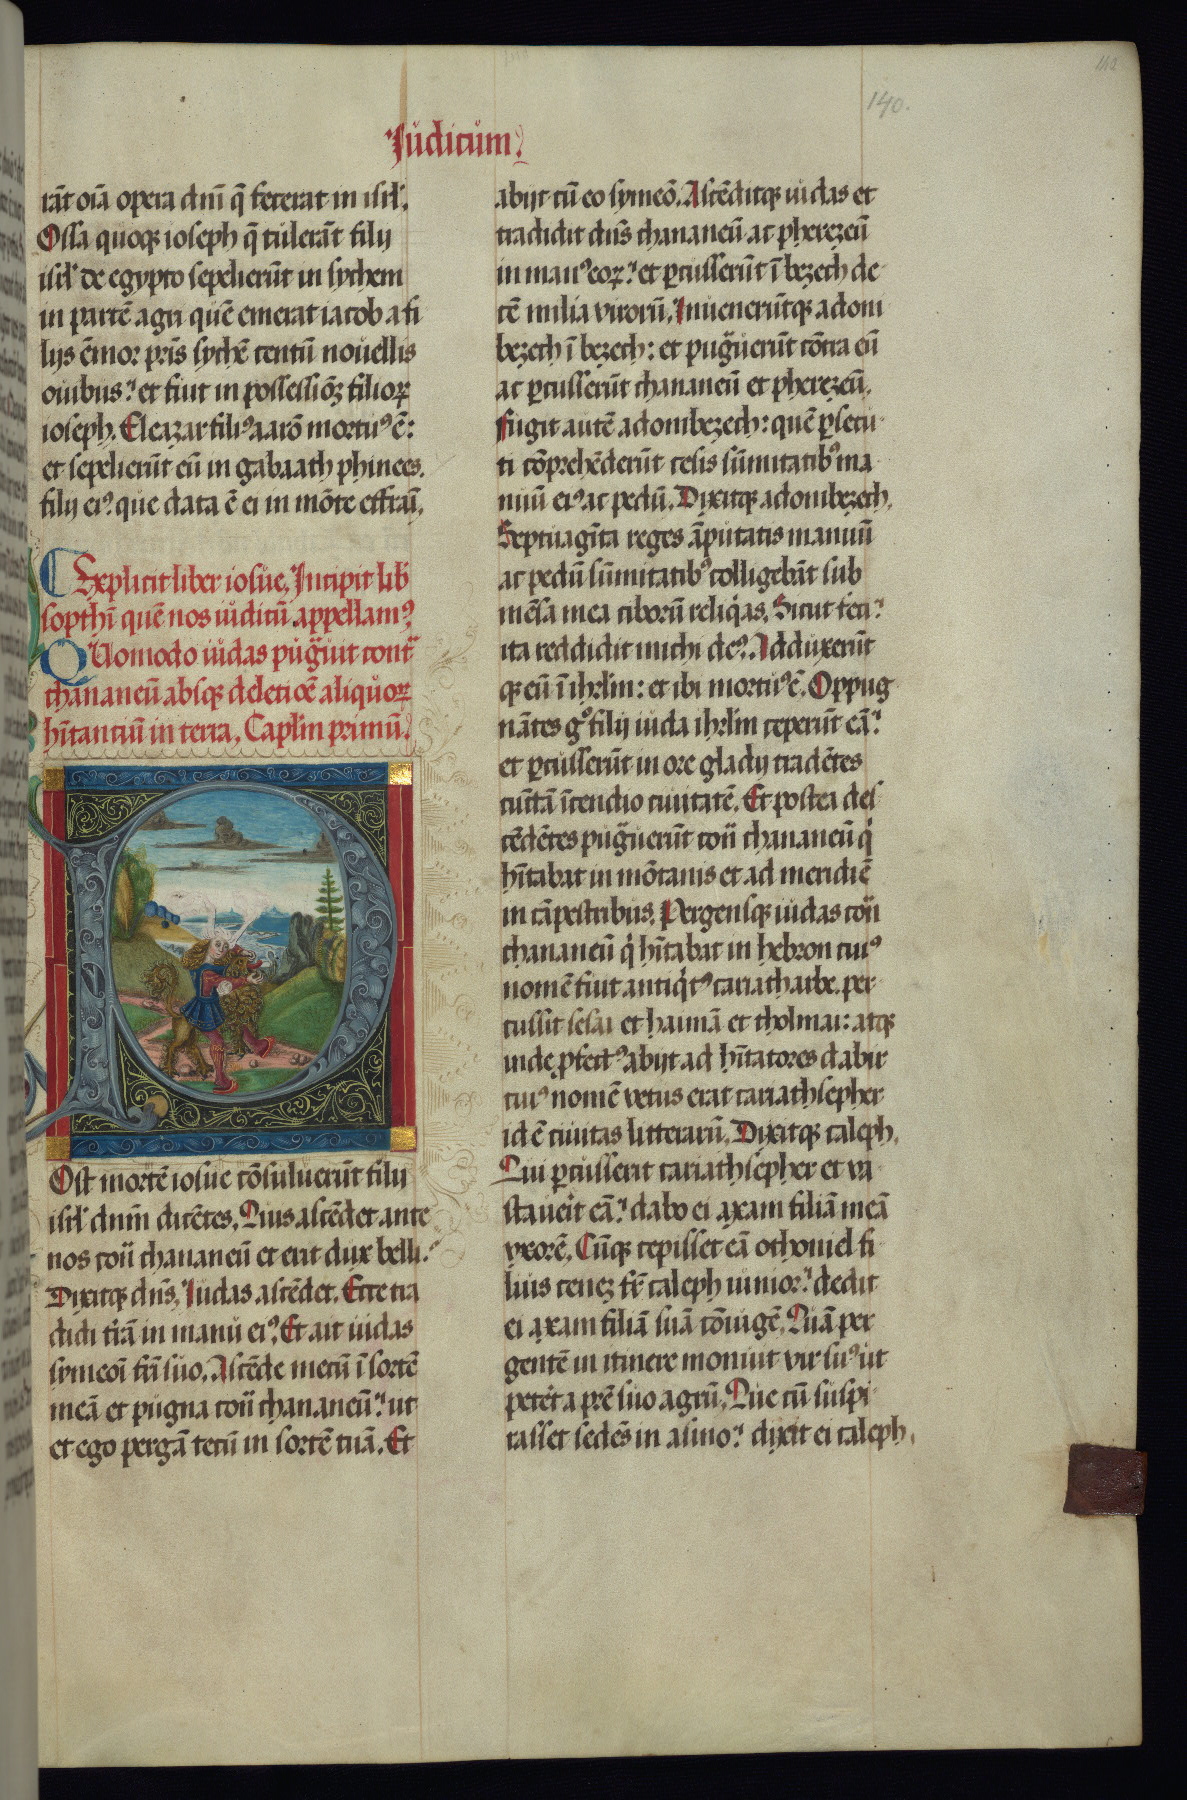 112
140.
Judicum
rāt oīa opera dnī q̄ fecerat in isrl'.
Ossa quoqȝ ioseph q̄ tulerāt filij
isrl' de egypto sepelierūt in sychem
in partē agri quē emerat iacob a fi
lijs ēmor pr̄is sychē centū nouellis
ouibus: et fuit in possessiōꝫ filioꝝ
ioseph. Eleazar filiꝰ aarō mortuꝰ ē:
et sepelierūt eū in gabaath phinees
filij eiꝰ que data ē ei in mōte effraī.
Explicit liber iosue. Incipit lib̄
sopthī quē nos iudicū appellamꝰ
Quomodo iudas pugͣuit contͣ
chananeū absqȝ deletiōe aliquoꝝ
hītantiū in terra. Caplm primū.
Post mortē iosue cōsuluerūt filij
isrl' dnm̄ dicētes. Quis ascēdet ante
nos cōtͣ chananeū et erit dux belli:
Dixitqȝ dn̄s. Iudas ascēdet. Ecce tra
didi tr̄ā in manu eiꝰ. Et ait iudas
symeoī fr̄i suo. Ascēde mecū ī sortē
meā et pugna cōtͣ chananeū: ut
et ego pergā tecū in sortē tuā. Et
abijt cū eo symeō. Ascēditqȝ iudas et
tradidit dn̄s chananeū ac pherezeū
in manꝰ eoꝝ: et ꝑcusserūt ī bezech de
cē milia virorū. Inuenerūtqȝ adoni
bezech ī bezech: et pugͣuerūt cōtra eū
ac ꝑcusserūt chananeū et pherezeū.
Fugit autē adonibezech: quē ꝑsecu
ti cōprehēderūt cesis sūmitatibꝰ ma
nuū eiꝰ ac pedū. Dixitqȝ adonibezech.
Septuagīta reges āputatis manuū
ac pedū sūmitatibꝰ colligebāt sub
mēsa mea ciborū reliqͥas. Sicut feci:
ita reddidit michi deꝰ. Adduxerūt
qȝ eū ī ihrlm: et ibi mortuꝰ ē. Oppug
nātes gͦ filij iuda ihrlm ceperūt eā:
et ꝑcusserūt in ore gladij tradētes
cūctā īcendio ciuitatē. Et postea des
cēdētes pugͣuerūt cōtͣ chananeū qͥ
hītabat in mōtanis et ad meridiē
in cāpestribus. Pergensqȝ iudas cōtͣ
chananeū qͥ hītabat in hebron cuiꝰ
nomē fuit antiqͥtꝰ cariatharbe. per
cussit sesai et haimā et tholmai: atqȝ
inde ꝓfectꝰ abijt ad hītatores dabir
cuiꝰ nomē vetus erat cariathsepher
id ē ciuitas litterarū. Dixitqȝ caleph.
Qui ꝑcusserit cariathsepher et va
stauerit eā: dabo ei axam filiā meā
vxorē. Cūqȝ cepisset eā othoniel fi
lius cenez fr̄ caleph iunior: dedit
ei axam filiā suā cōiugē. Quā per
gentē in itinere monuit vir suꝰ ut
peteret a prē suo agrū. Que cū suspi
rasset sedēs in asino: dixit ei caleph.